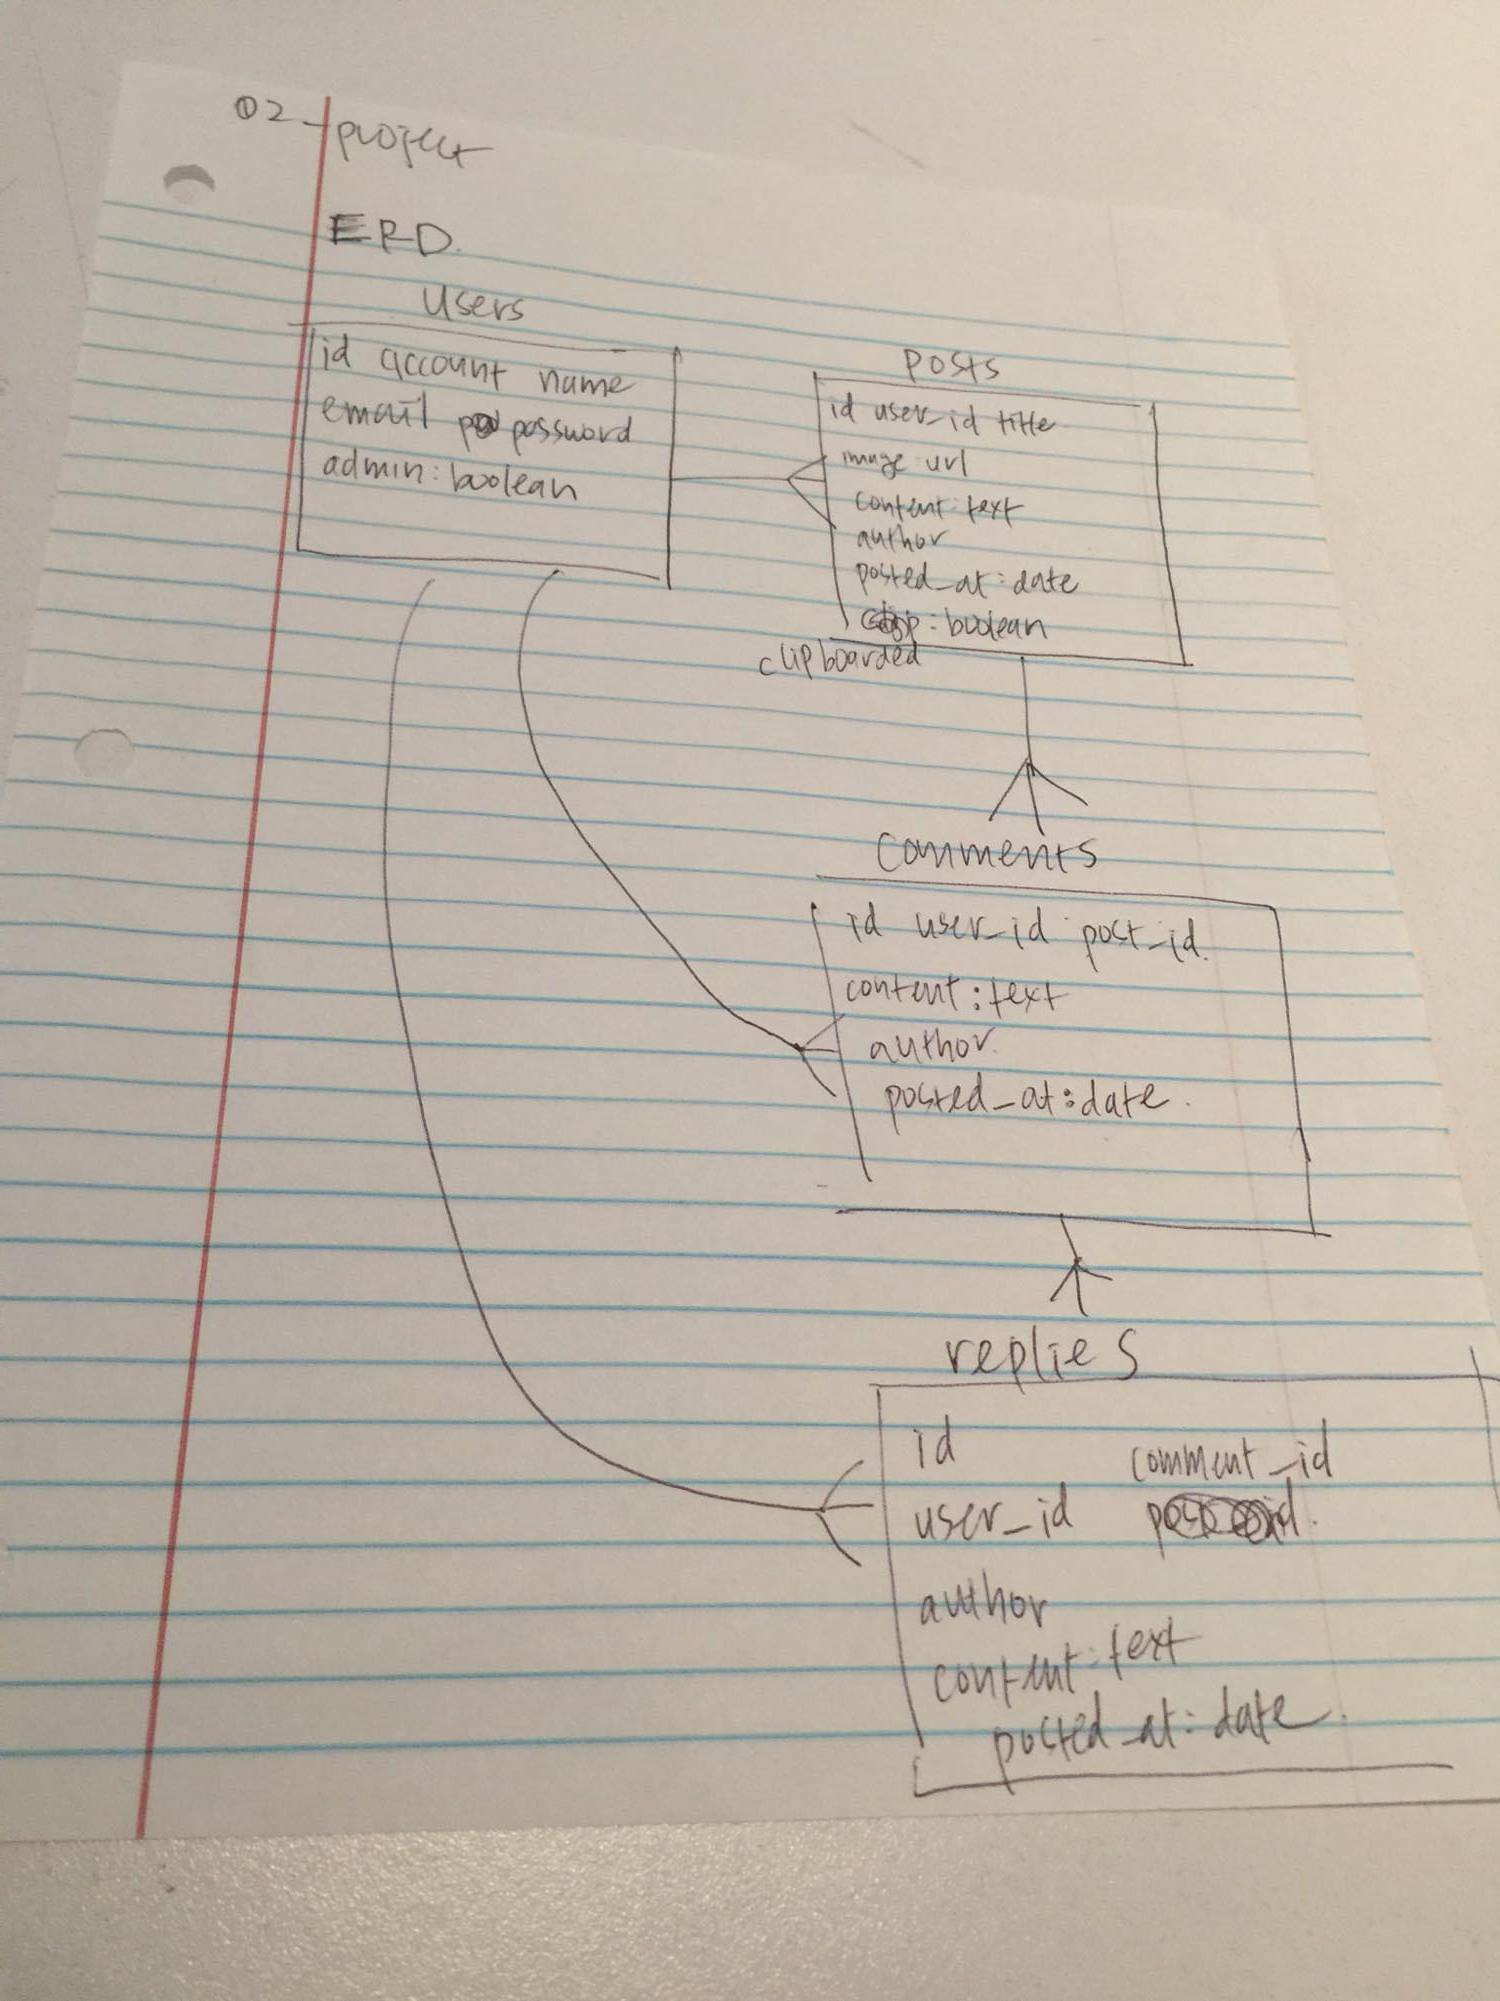 02-project
ERD.
Users
id account name
email password
admin:boolean
posts
id user_id title
image url
content text
author
posted_at:date
:boolean
clipboarded
comments
id user_id post_id.
content:text
author.
posted_at:date.
replies
id comment_id
user_id
author
content:text
posted_at:date.